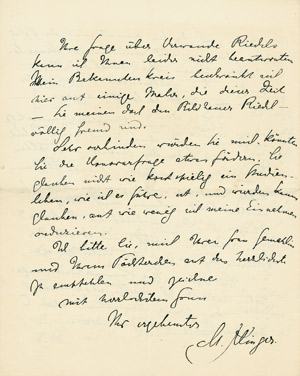 Ihre Frage über Verwandte Riedels
kann ich Ihnen leider nicht beantworten
Mein Bekanntenkreis beschränkt sich
hier auf einige Maler, die dieser Zeit
— Sie meinen doch den Bildhauer Riedel —
völlig fremd sind.
Sehr verbinden würden Sie mich, könnten
Sie die Honorarfrage etwas fördern. Sie
glauben nicht wie kostspielig ein Studien-
leben, wie ich es führe, ist, und würden kaum
glauben, auf wie wenig ich meine Einnahmen
reduzieren.
Ich bitte Sie, mich Ihrer Frau Gemahlin
und Ihrem Töchterchen auf das herzlichste
zu empfehlen und zeichne
mit herzlichstem Gruss
Ihr ergebenster
M. Klinger.